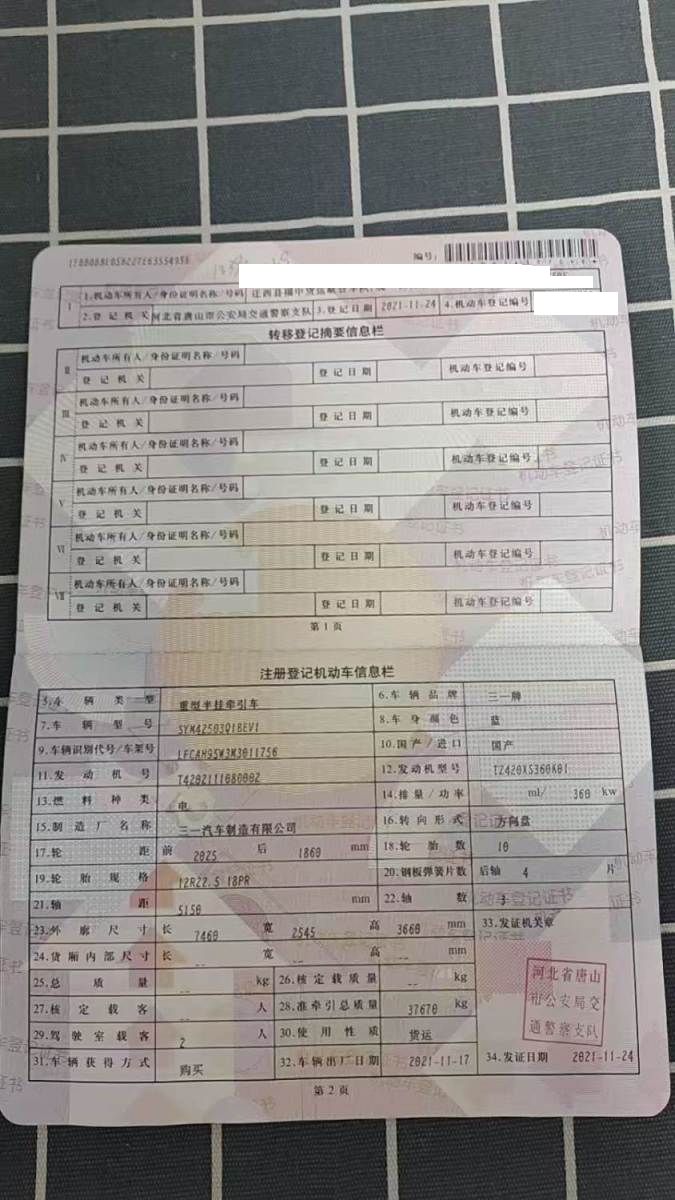 编号:
1.机动车所有人/身份证明名称/号码
I 2.登记机关 河北省唐山市公安局交通警察支队 3.登记日期 2021-11-24 4.机动车登记编号
转移登记摘要信息栏
II 机动车所有人/身份证明名称/号码
登记机关 登记日期 机动车登记编号
III 机动车所有人/身份证明名称/号码
登记机关 登记日期 机动车登记编号
IV 机动车所有人/身份证明名称/号码
登记机关 登记日期 机动车登记编号
V 机动车所有人/身份证明名称/号码
登记机关 登记日期 机动车登记编号
VI 机动车所有人/身份证明名称/号码
登记机关 登记日期 机动车登记编号
VII 机动车所有人/身份证明名称/号码
登记机关 登记日期 机动车登记编号
第1页
注册登记机动车信息栏
5.车辆类型 重型半挂牵引车 6.车辆品牌 三一牌
7.车辆型号 SYM42503Q1BEV1 8.车身颜色 蓝
9.车辆识别代号/车架号 LFCAH95W3M3011756 10.国产/进口 国产
11.发动机号 T42021110800​02 12.发动机型号 TZ420XS360K01
13.燃料种类 电 14.排量/功率 ml/ 360 kw
15.制造厂名称 三一汽车制造有限公司 16.转向形式 方向盘
17.轮距 前 2025 后 1860 mm 18.轮胎数 10
19.轮胎规格 12R22.5 18PR 20.钢板弹簧片数 后轴 4 片
21.轴距 5150 mm 22.轴数 3
23.外廓尺寸 长 7460 宽 2545 高 3660 mm 33.发证机关章
24.货厢内部尺寸 长 -- 宽 -- 高 -- mm
25.总质量 -- kg 26.核定载质量 -- kg
27.核定载客 -- 人 28.准牵引总质量 37670 kg
29.驾驶室载客 2 人 30.使用性质 货运
31.车辆获得方式 购买 32.车辆出厂日期 2021-11-17 34.发证日期 2021-11-24
河北省唐山
市公安局交
通警察支队
第2页